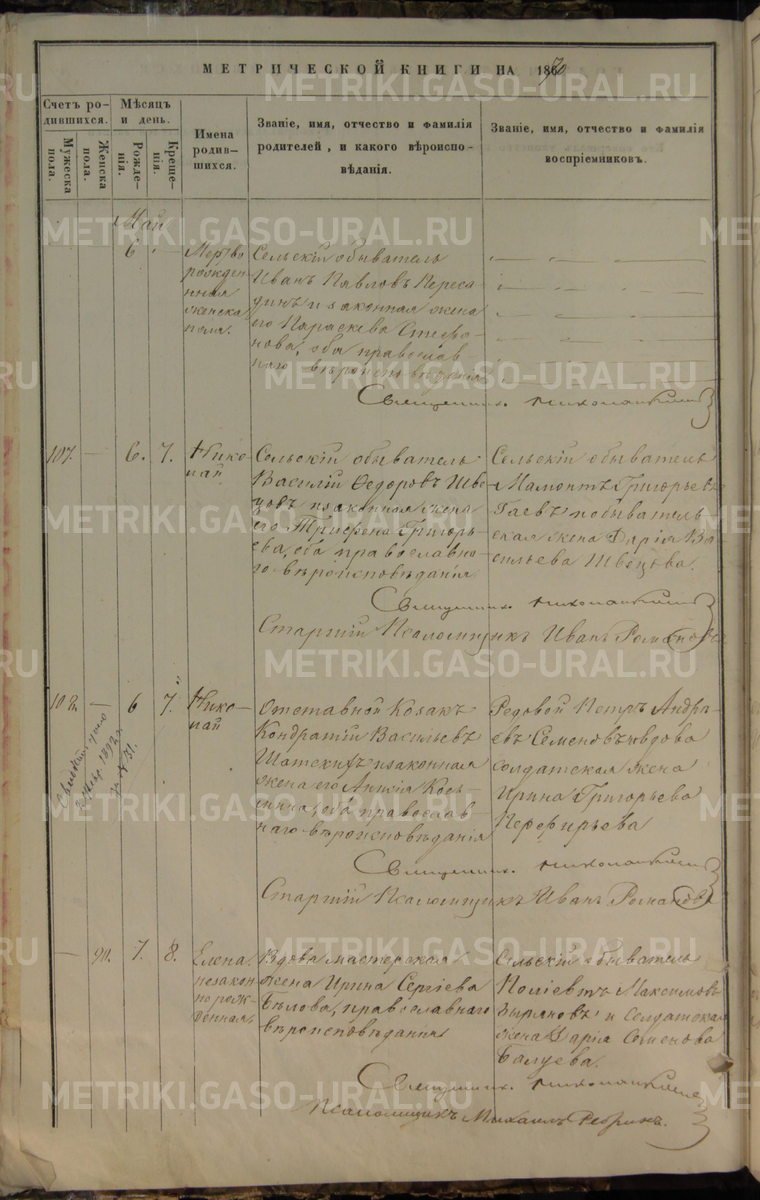 МЕТРИЧЕСКОЙ КНИГИ НА 1870
Счетъ ро-
дившихся.
Мужеска
пола.
Женска
пола.
Мѣсяцъ
и день.
Рожде-
нія.
Креще-
нія.
Имена
родив-
шихся.
Званіе, имя, отчество и фамилія
родителей, и какого вѣроиспо-
вѣданія.
Званіе, имя, отчество и фамилія
воспріемниковъ.
Май
6 —
Мертво
рожден-
нная
женска
пола.
Сельскій обыватель
Иванъ Павловъ Пересa
динъ и законная жена
его Параскева Стефа-
нова, оба православ
наго вѣроисповѣданія
Священникъ
107. — 6. 7.
Нико-
лай
Сельскій обыватель
Василій Ѳедоровъ Шве
цовъ и законная жена
его Трифена Григорь-
ева, оба православно-
го вѣроисповѣданія
Сельскій обыватель
Мамонтъ Григорьевъ
Гаевъ и обыватель-
ская жена Дарія Ва-
сильева Швецова.
Священникъ
Старшій Псаломщикъ Иванъ Романовъ
108. — 6 7.
Нико-
лай
1892
31.
Отставной Козакъ
Кондратій Васильевъ
Шатскихъ и законная
жена его Анна Кось-
мина, оба православ-
наго вѣроисповѣданія
Редовой Петръ Андре-
евъ Семеновъ и вдова
солдатская жена
Ирина Григорьева
Перфирьева
Священникъ
Старшій Псаломщикъ Иванъ Романовъ
— 90. 7. 8.
Елена,
незакон
норож-
денная,
Вдова мастерская
жена Ирина Сергіева
Бѣлова, православнаго
вѣроисповѣданія
Сельскій обыватель
Поліевтъ Максимовъ
Зыряновъ и солдатская
жена Дарія Семенова
Балуева.
Священникъ
Псаломщикъ Михаилъ
METRIKI.GASO-URAL.RU
METRIKI.GASO-URAL.RU
METRIKI.GASO-URAL.RU
METRIKI.GASO-URAL.RU
METRIKI.GASO-URAL.RU
METRIKI.GASO-URAL.RU
METRIKI.GASO-URAL.RU
METRIKI.GASO-URAL.RU